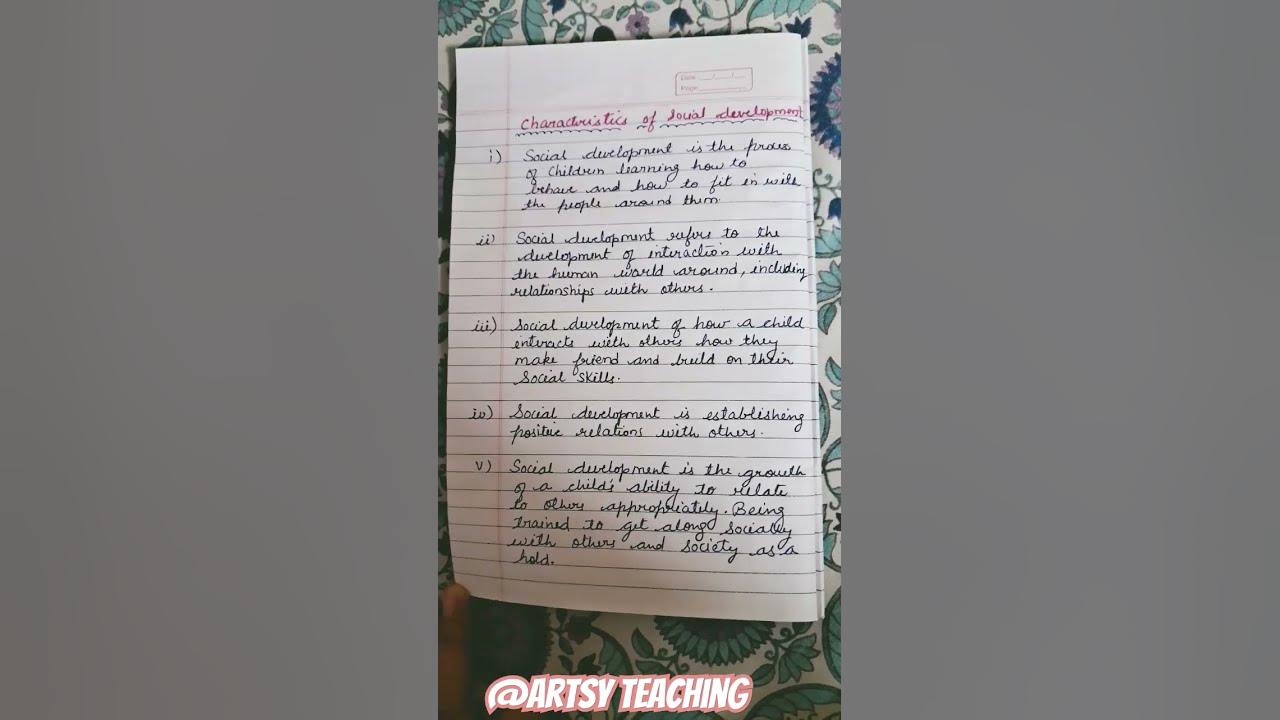 Date __/__/__
Page ________
Characteristics of Social development
i) Social development is the process
of Children learning how to
behave and how to fit in with
the people around them.
ii) Social development refers to the
development of interaction with
the human world around, including
relationships with others.
iii) Social development of how a child
interacts with others how they
make friend and build on their
Social Skills.
iv) Social development is establishing
positive relations with others.
v) Social development is the growth
of a child's ability to relate
to others appropriately. Being
trained to get along socially
with others and society as a
hold.
@ARTSY TEACHING